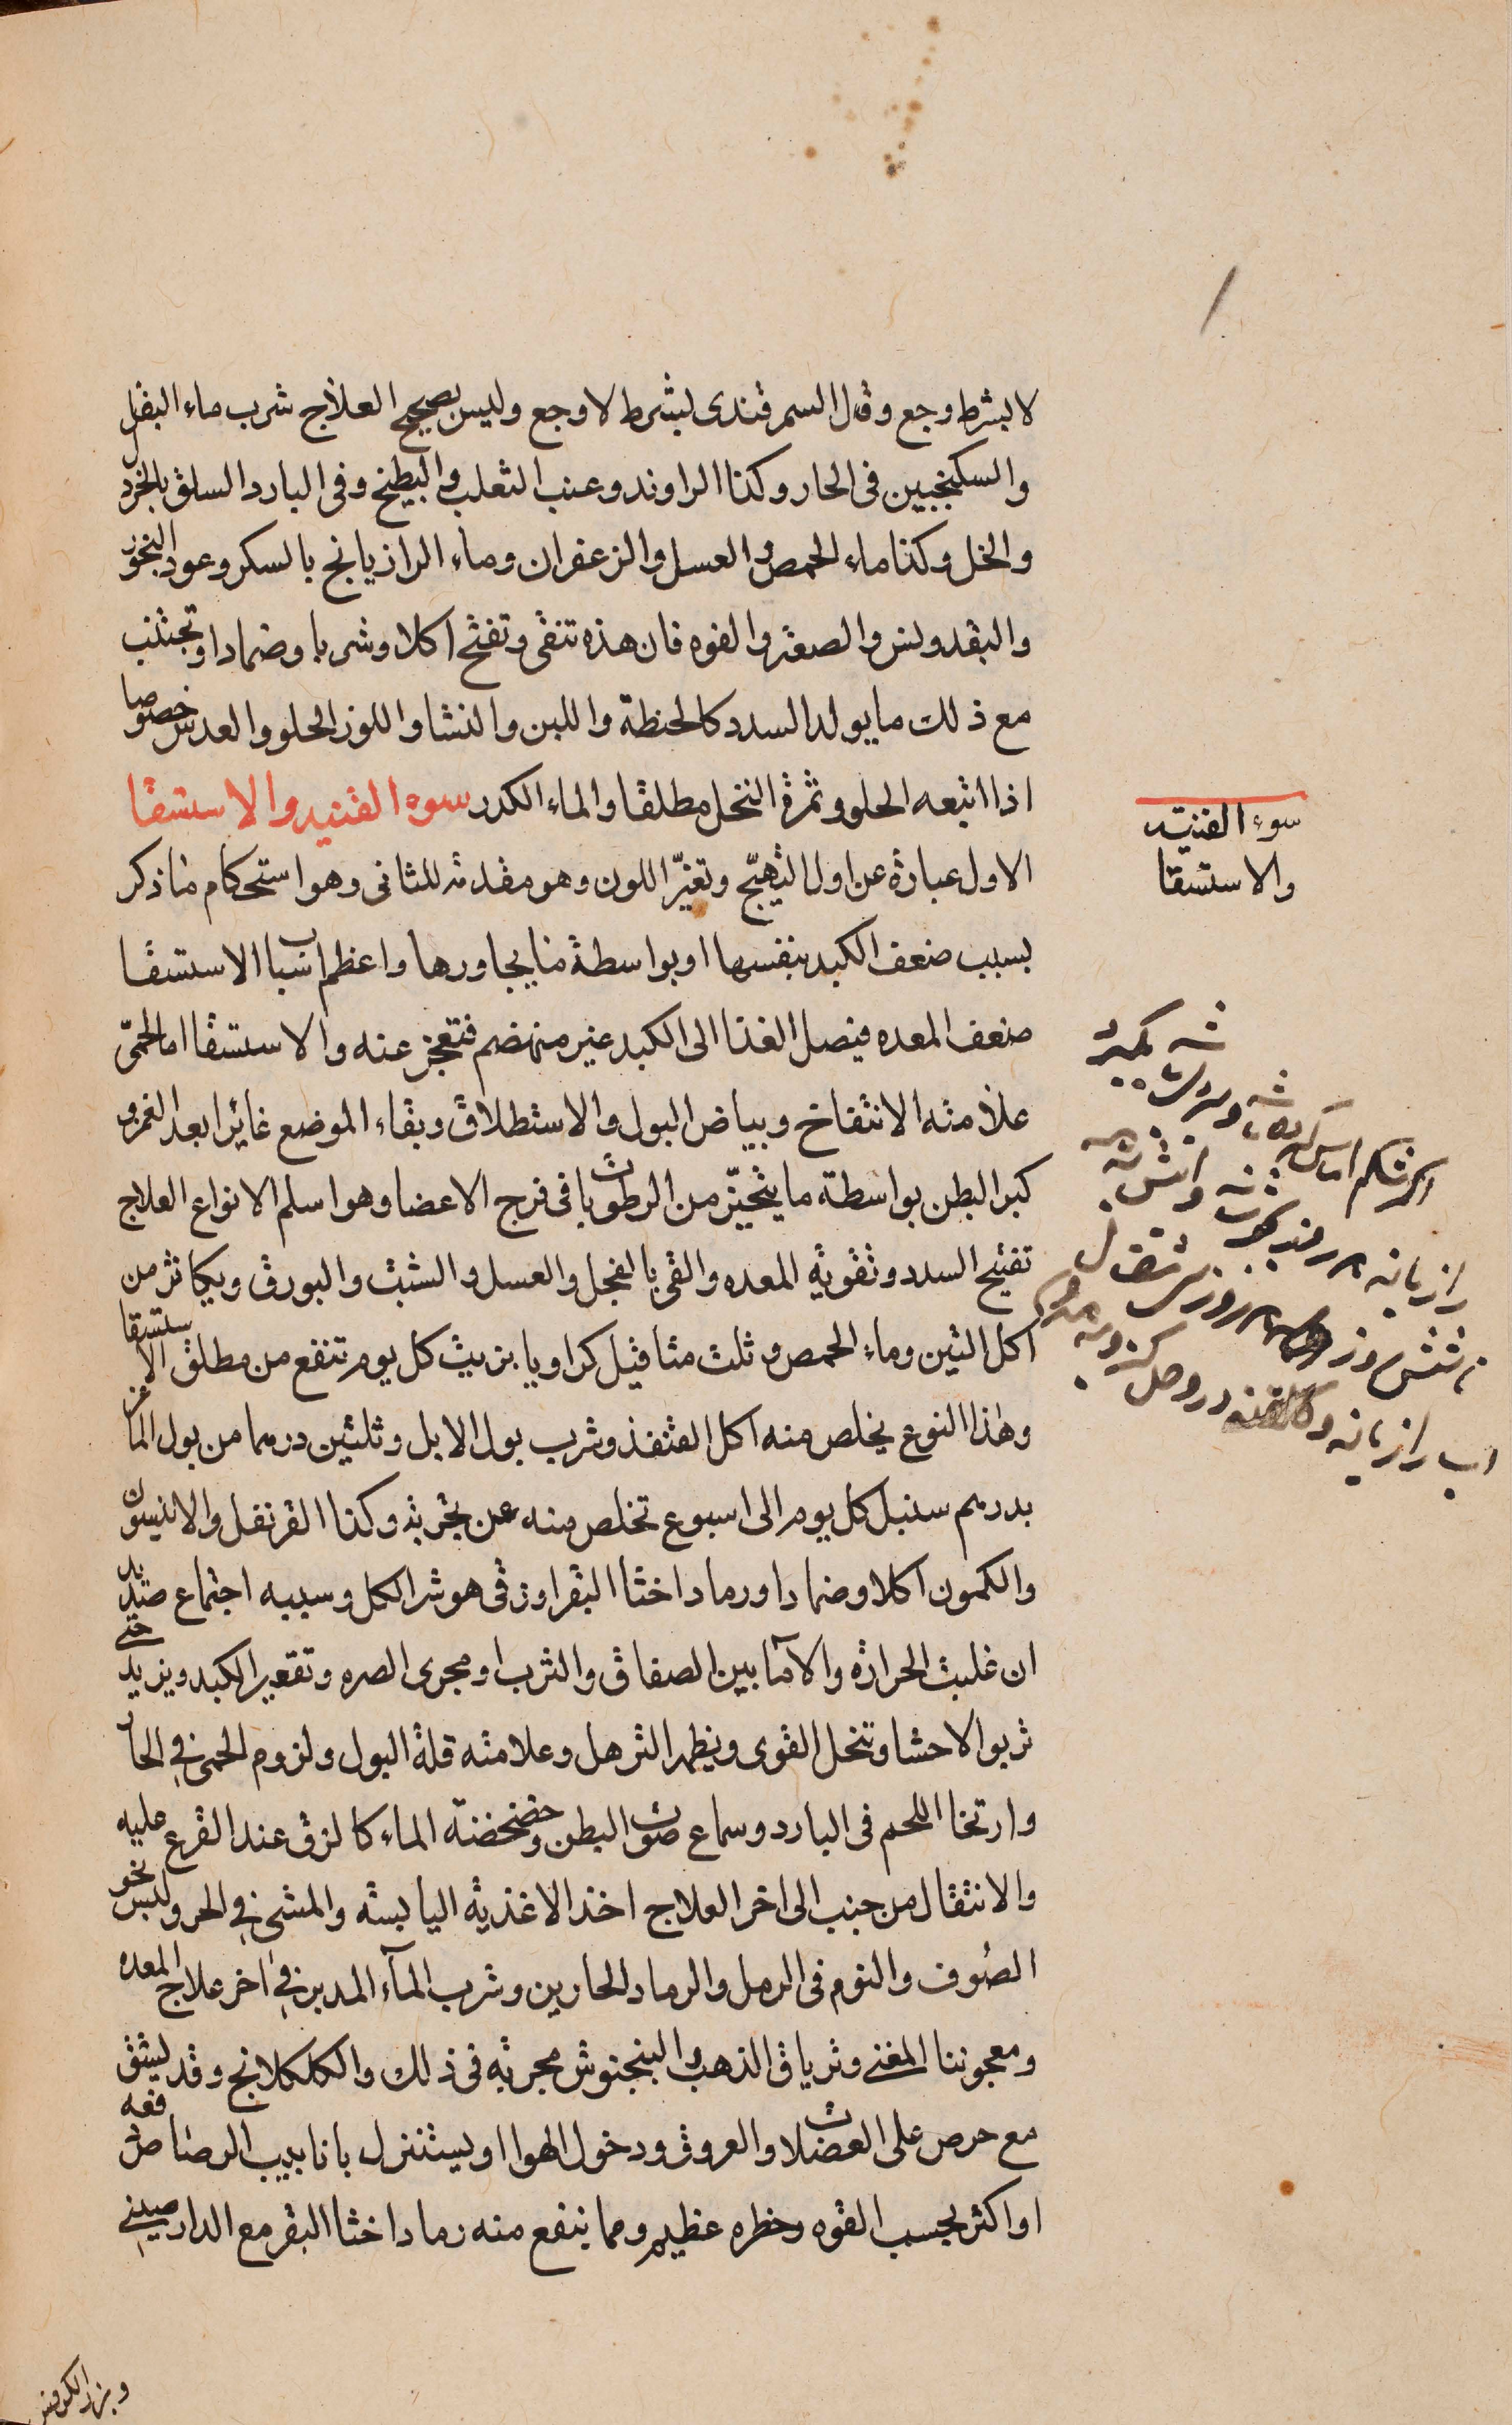 لا بشرط وجع وقال السمرقندى بشرط لا وجع وليس بصحيح العلاج شرب ماء البقل
والسكنجبين فى الحار وكذا الراوند وعنب الثعلب والبطيخ وفى البارد السلق بالخردل
والخل وكذا ماء الحمص والعسل والزعفران وماء الرازيانج بالسكر وعود البخور
والبقدونس والصعتر والفوه فان هذه تنقى وتفتح اكلا وشربا وضمادا وتجتنب
مع ذلك ما يولد السدد كالحنطة واللبن والنشا واللوز الحلو والعدس خصوصا
اذا اتبعه الحلو وثمرة النخل مطلقا والماء الكدر سوء القنيه والاستسقا
الاول عبارة عن اول التهيّج وتغيّر اللون وهو مقدمة للثانى وهو استحكام ما ذكر
بسبب ضعف الكبد بنفسها او بواسطة ما يجاورها واعظم اسباب الاستسقا
ضعف المعده فيصل الغذا الى الكبد غير منهضم فتعجز عنه والاستسقا اما لحمىّ
علامته الانتفاخ وبياض البول والاستطلاق وبقاء الموضع غائرا بعد الغمز و
كبر البطن بواسطة ما يتحيّز من الرطوبات فى فرج الاعضا وهو اسلم الانواع العلاج
تفتيح السدد وتقوية المعده والقى بالفجل والعسل والشبث والبورق ويكاثر من
اكل التين وماء الحمص وثلث مثاقيل كراويا بزيت كل يوم تنفع من مطلق الاستسقا
وهذا النوع يخلص منه اكل القنفذ وشرب بول الابل وثلثين درهما من بول الماعز
بدرهم سنبل كل يوم الى اسبوع تخلص منه عن تجربة وكذا القرنفل والانيسون
والكمون اكلا وضمادا ورماد اخثا البقر او زقى هو شر الكل وسببه اجتماع صديد
ان غلبت الحرارة والا ما بين الصفاق والثرب او مجرى السره وتقعير الكبد ويزيد حتى
تربوا الاحشا وتنحل القوى ويظهر الترهل وعلامته قلة البول ولزوم الحمى فى الحار
وارتخا اللحم فى البارد وسماع صوت البطن وخضخضة الماء كالزق عند القرع عليه
والانتقال من جنب الى اخر العلاج اخذ الاغذية اليابسة والمشى فى الحر ولبس نحو
الصُوف والنوم فى الرمل والرماد الحارين وشرب المآء المدبر فى اخر علاج المعده
ومعجوننا المغنى وترياق الذهب والبنجنوش مجربة فى ذلك والكلكلانج وقد يشق
مع حرص على العضلات والعروق ودخول الهوا او يستنزل بانابيب الرصاص دفعه
او اكثر بحسب القوه وخطره عظيم ومما ينفع منه رماد اخثا البقر مع الدارصينى
وبزر الكرفس
سوء القنيه
والاستسقا
اكر شكم اماس
رازيانه
اب رازيانه